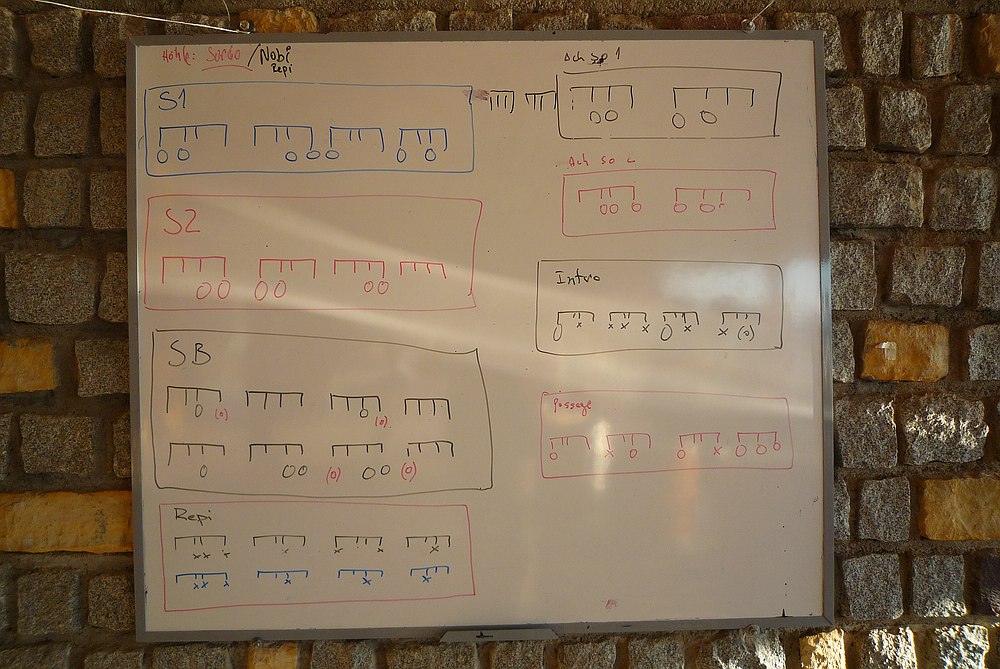 Höhle: Sorbo / Nobi
Repi
S1
S2
SB
Repi
Ach 1
Ach so
Intro
Passage